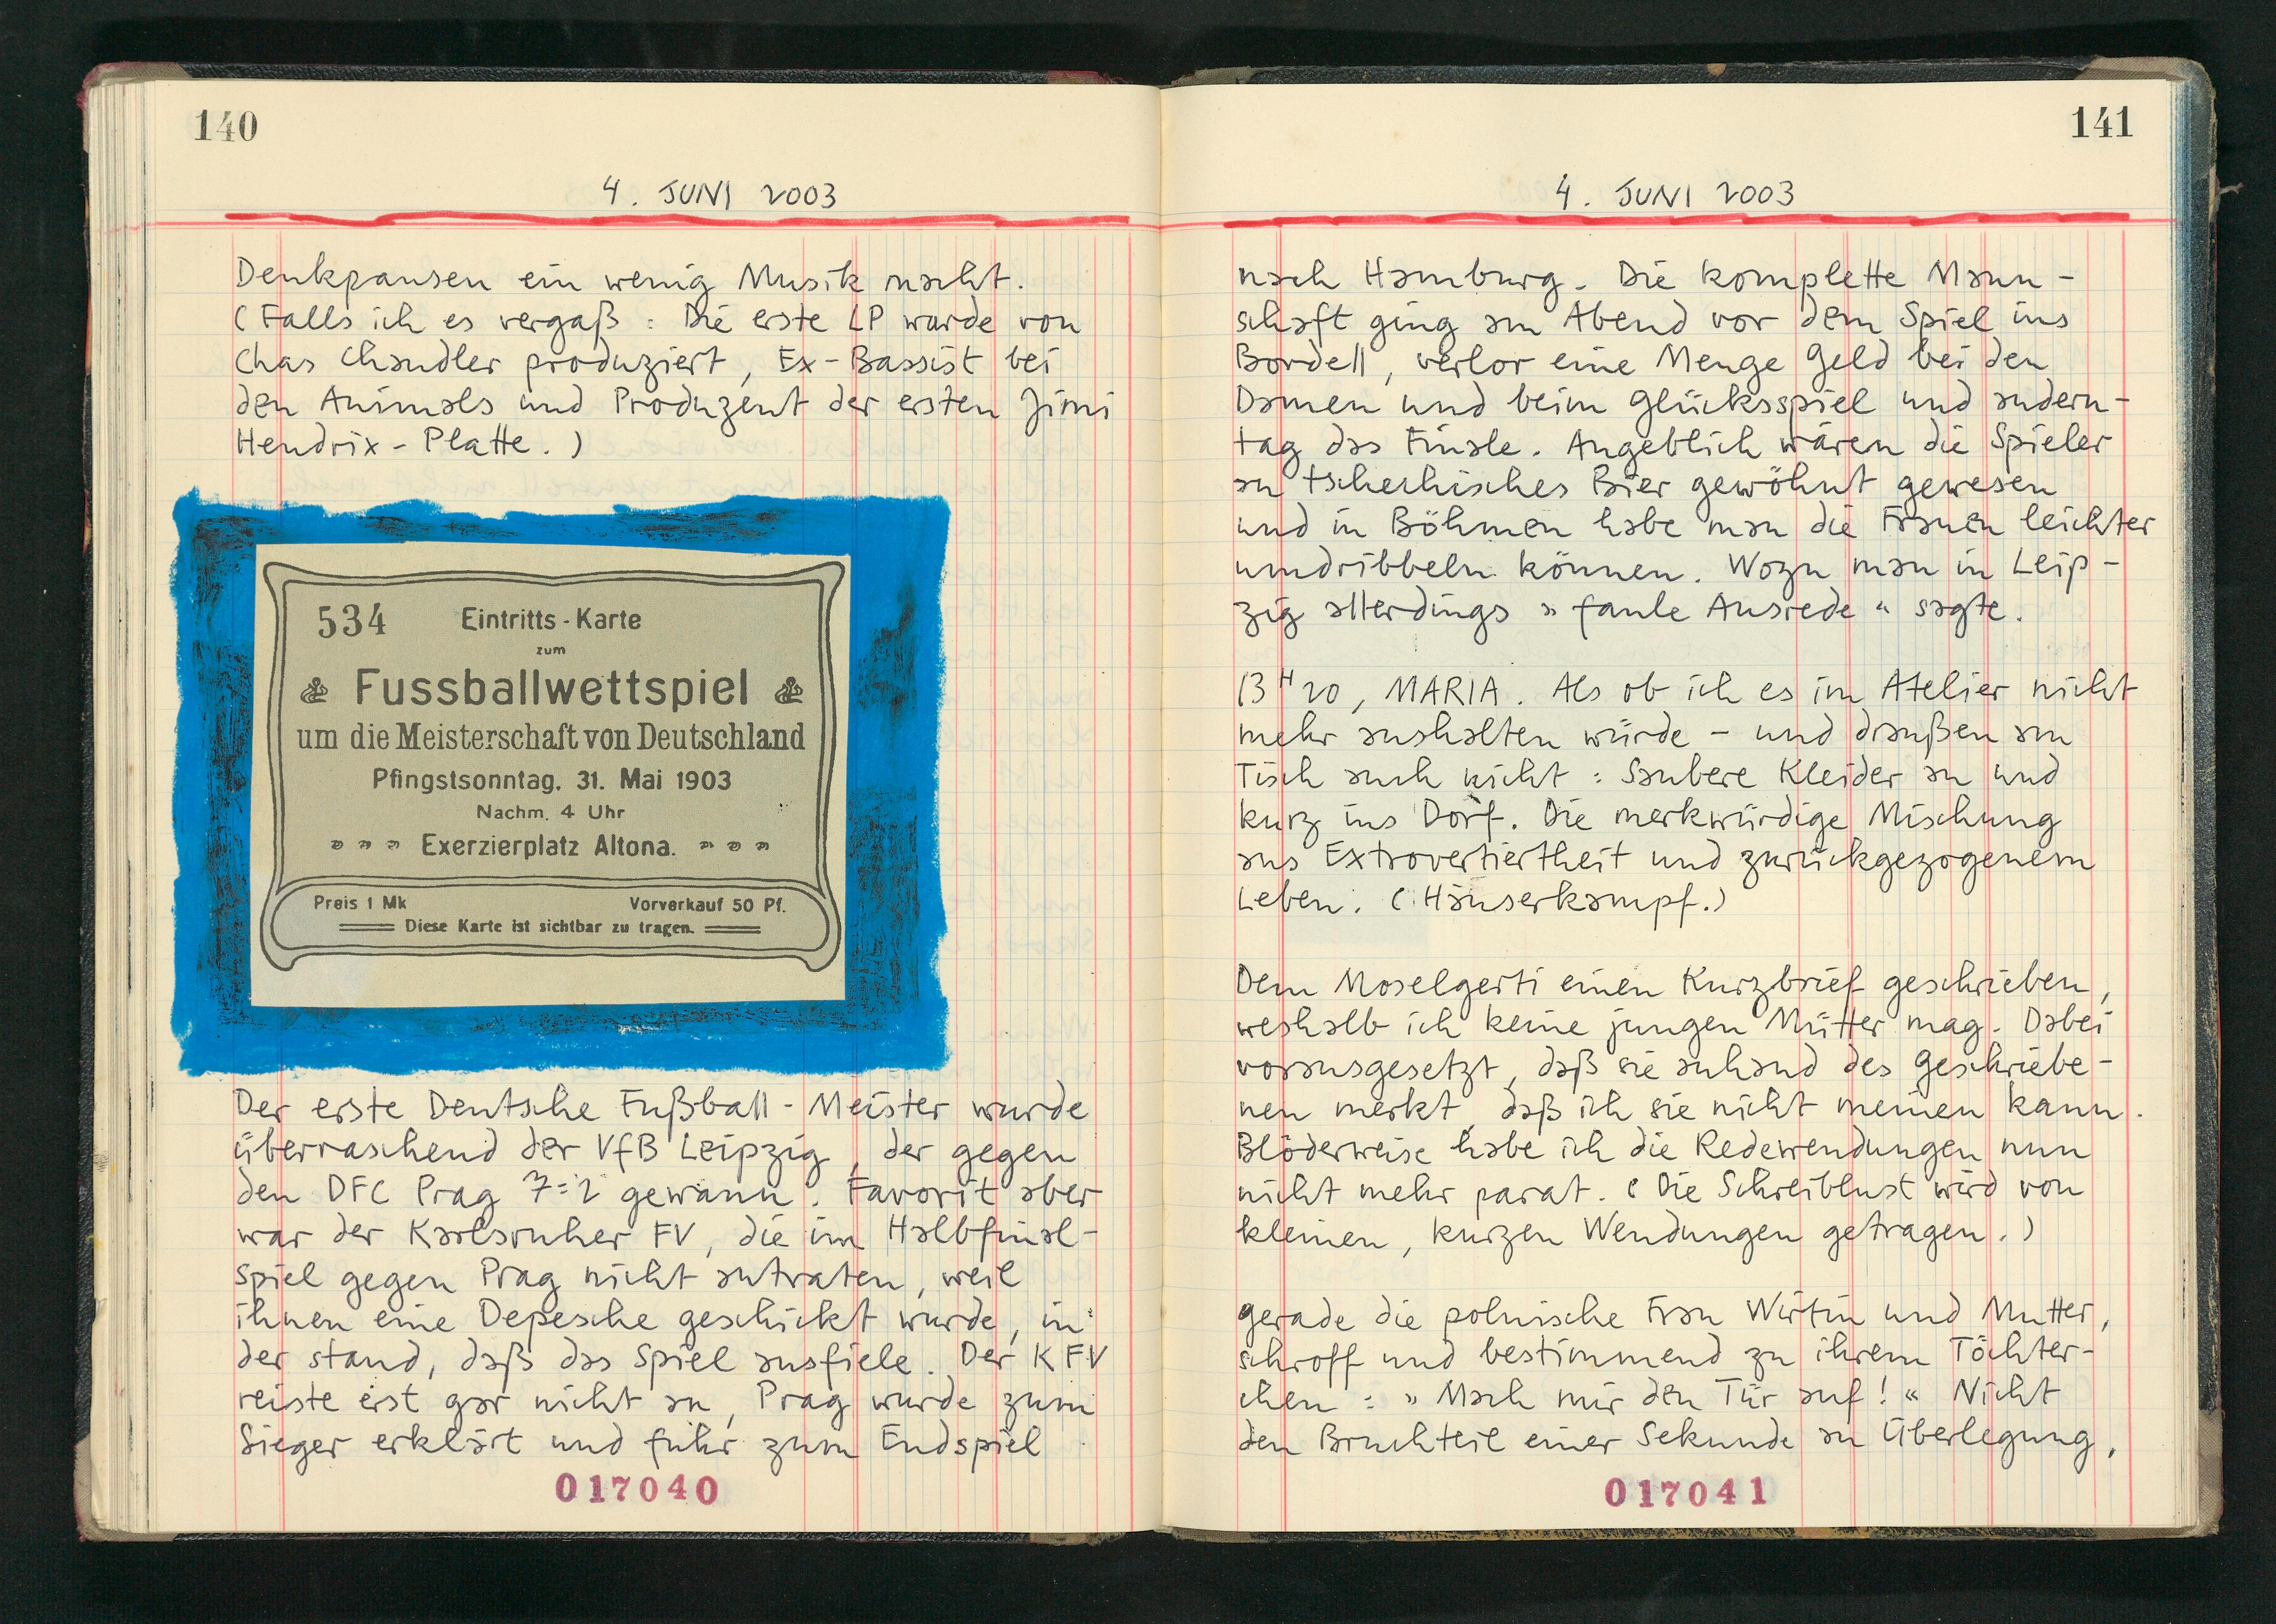 140
4. JUNI 2003
Denkpausen ein wenig Musik macht.
(Falls ich es vergaß: Die erste LP wurde von
Chas Chandler produziert, Ex-Bassist bei
den Animals und Produzent der ersten Jimi
Hendrix-Platte.)
534 Eintritts-Karte
zum
Fussballwettspiel
um die Meisterschaft von Deutschland
Pfingstsonntag, 31. Mai 1903
Nachm. 4 Uhr
Exerzierplatz Altona.
Preis 1 Mk Vorverkauf 50 Pf.
Diese Karte ist sichtbar zu tragen.
Der erste Deutsche Fußball-Meister wurde
überraschend der VfB Leipzig, der gegen
den DFC Prag 7:2 gewann. Favorit aber
war der Karlsruher FV, die im Halbfinal-
spiel gegen Prag nicht antraten, weil
ihnen eine Depesche geschickt wurde, in
der stand, daß das Spiel ausfiele. Der KFV
reiste erst gar nicht an, Prag wurde zum
Sieger erklärt und fuhr zum Endspiel
017040
141
4. JUNI 2003
nach Hamburg. Die komplette Mann-
schaft ging am Abend vor dem Spiel ins
Bordell, verlor eine Menge Geld bei den
Damen und beim Glücksspiel und andern-
tag das Finale. Angeblich wären die Spieler
an tschechisches Bier gewöhnt gewesen
und in Böhmen habe man die Frauen leichter
umdribbeln können. Wozu man in Leip-
zig allerdings »faule Ausrede« sagte.
13H20, MARIA. Als ob ich es im Atelier nicht
mehr aushalten würde – und draußen am
Tisch auch nicht: Saubere Kleider an und
kurz ins Dorf. Die merkwürdige Mischung
aus Extrovertiertheit und zurückgezogenem
Leben. (Häuserkampf.)
Dem Moselgerti einen Kurzbrief geschrieben,
weshalb ich keine jungen Mütter mag. Dabei
vorausgesetzt, daß sie anhand des Geschriebe-
nen merkt, daß ich sie nicht meinen kann.
Blöderweise habe ich die Redewendungen nun
nicht mehr parat. (Die Schreiblust wird von
kleinen, kurzen Wendungen getragen.)
Gerade die polnische Frau Wirtin und Mutter,
schroff und bestimmend zu ihrem Töchter-
chen: »Mach mir den Tür auf!« Nicht
den Bruchteil einer Sekunde an Überlegung,
017041